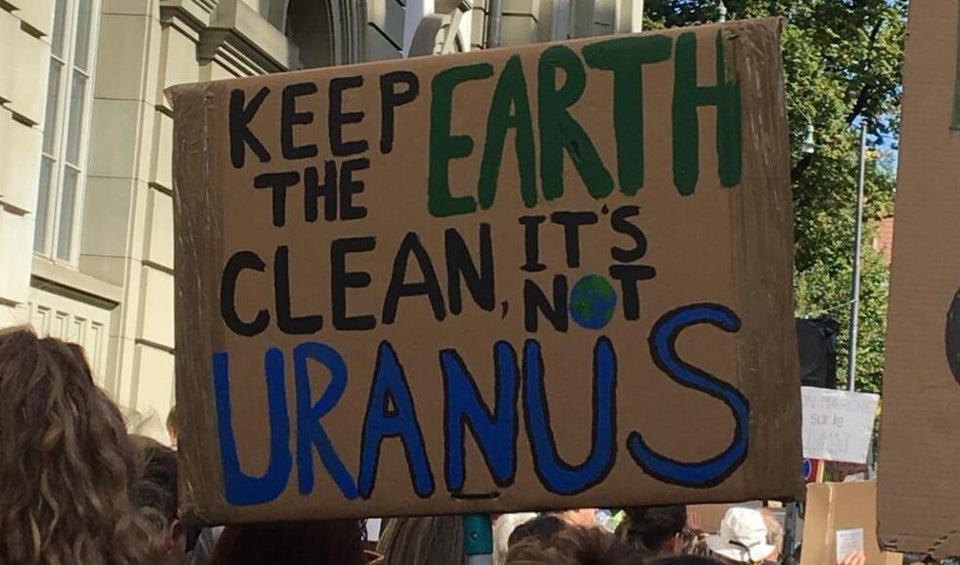 KEEP EARTH
THE
CLEAN, IT'S
NOT
URANUS
sur le